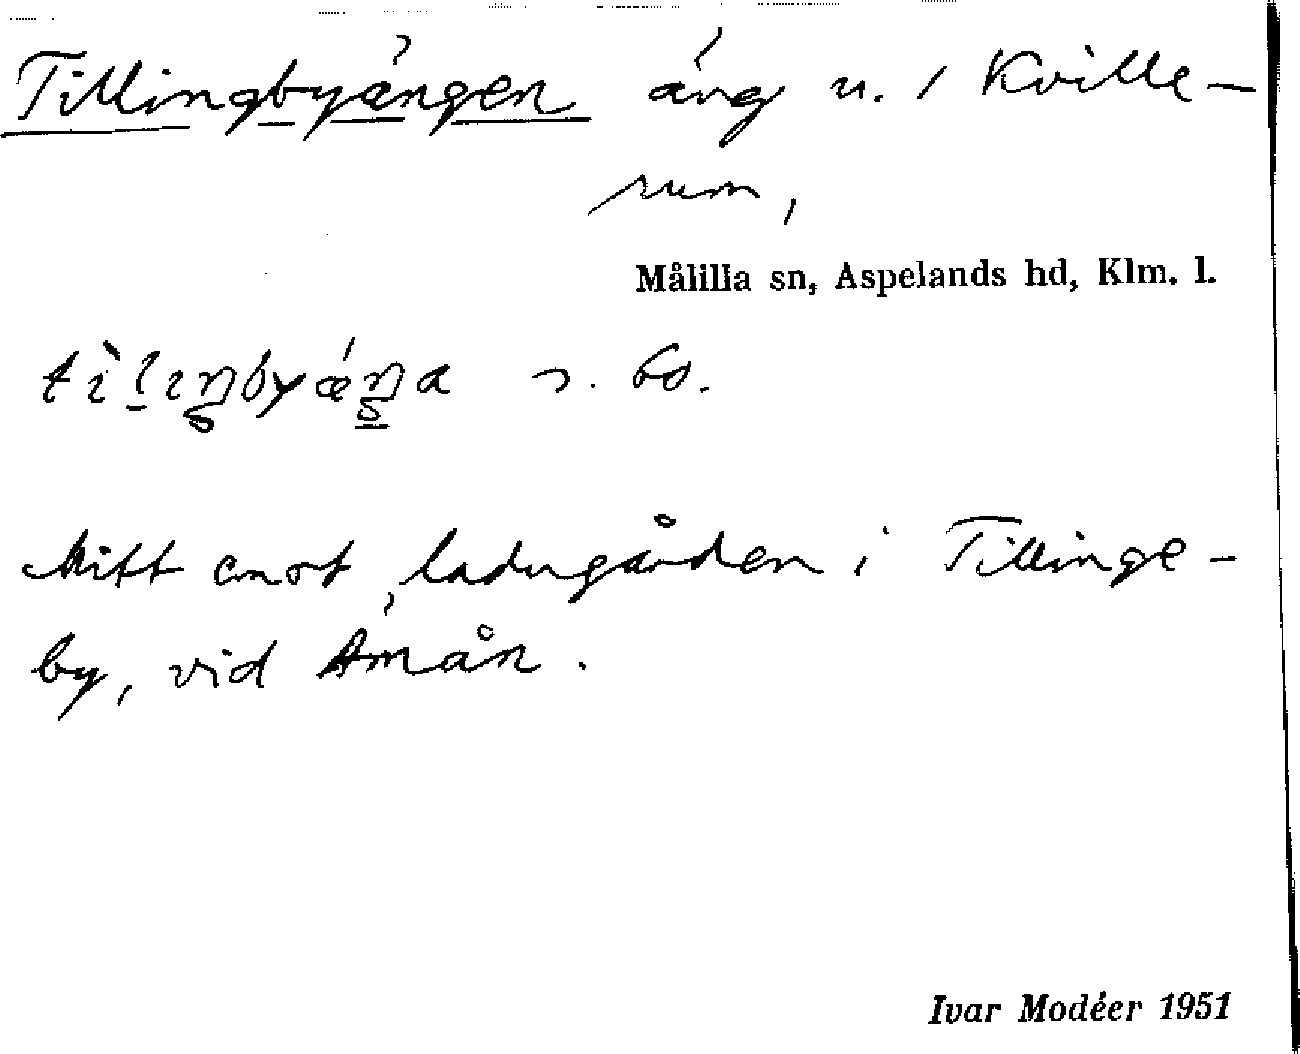 Tillingbyängen äng u. / Kville-
rum,
Målilla sn, Aspelands hd, Klm. l.
Mitt emot ladugården i Tillinge-
by, vid Åmån.
Ivar Modéer 1951